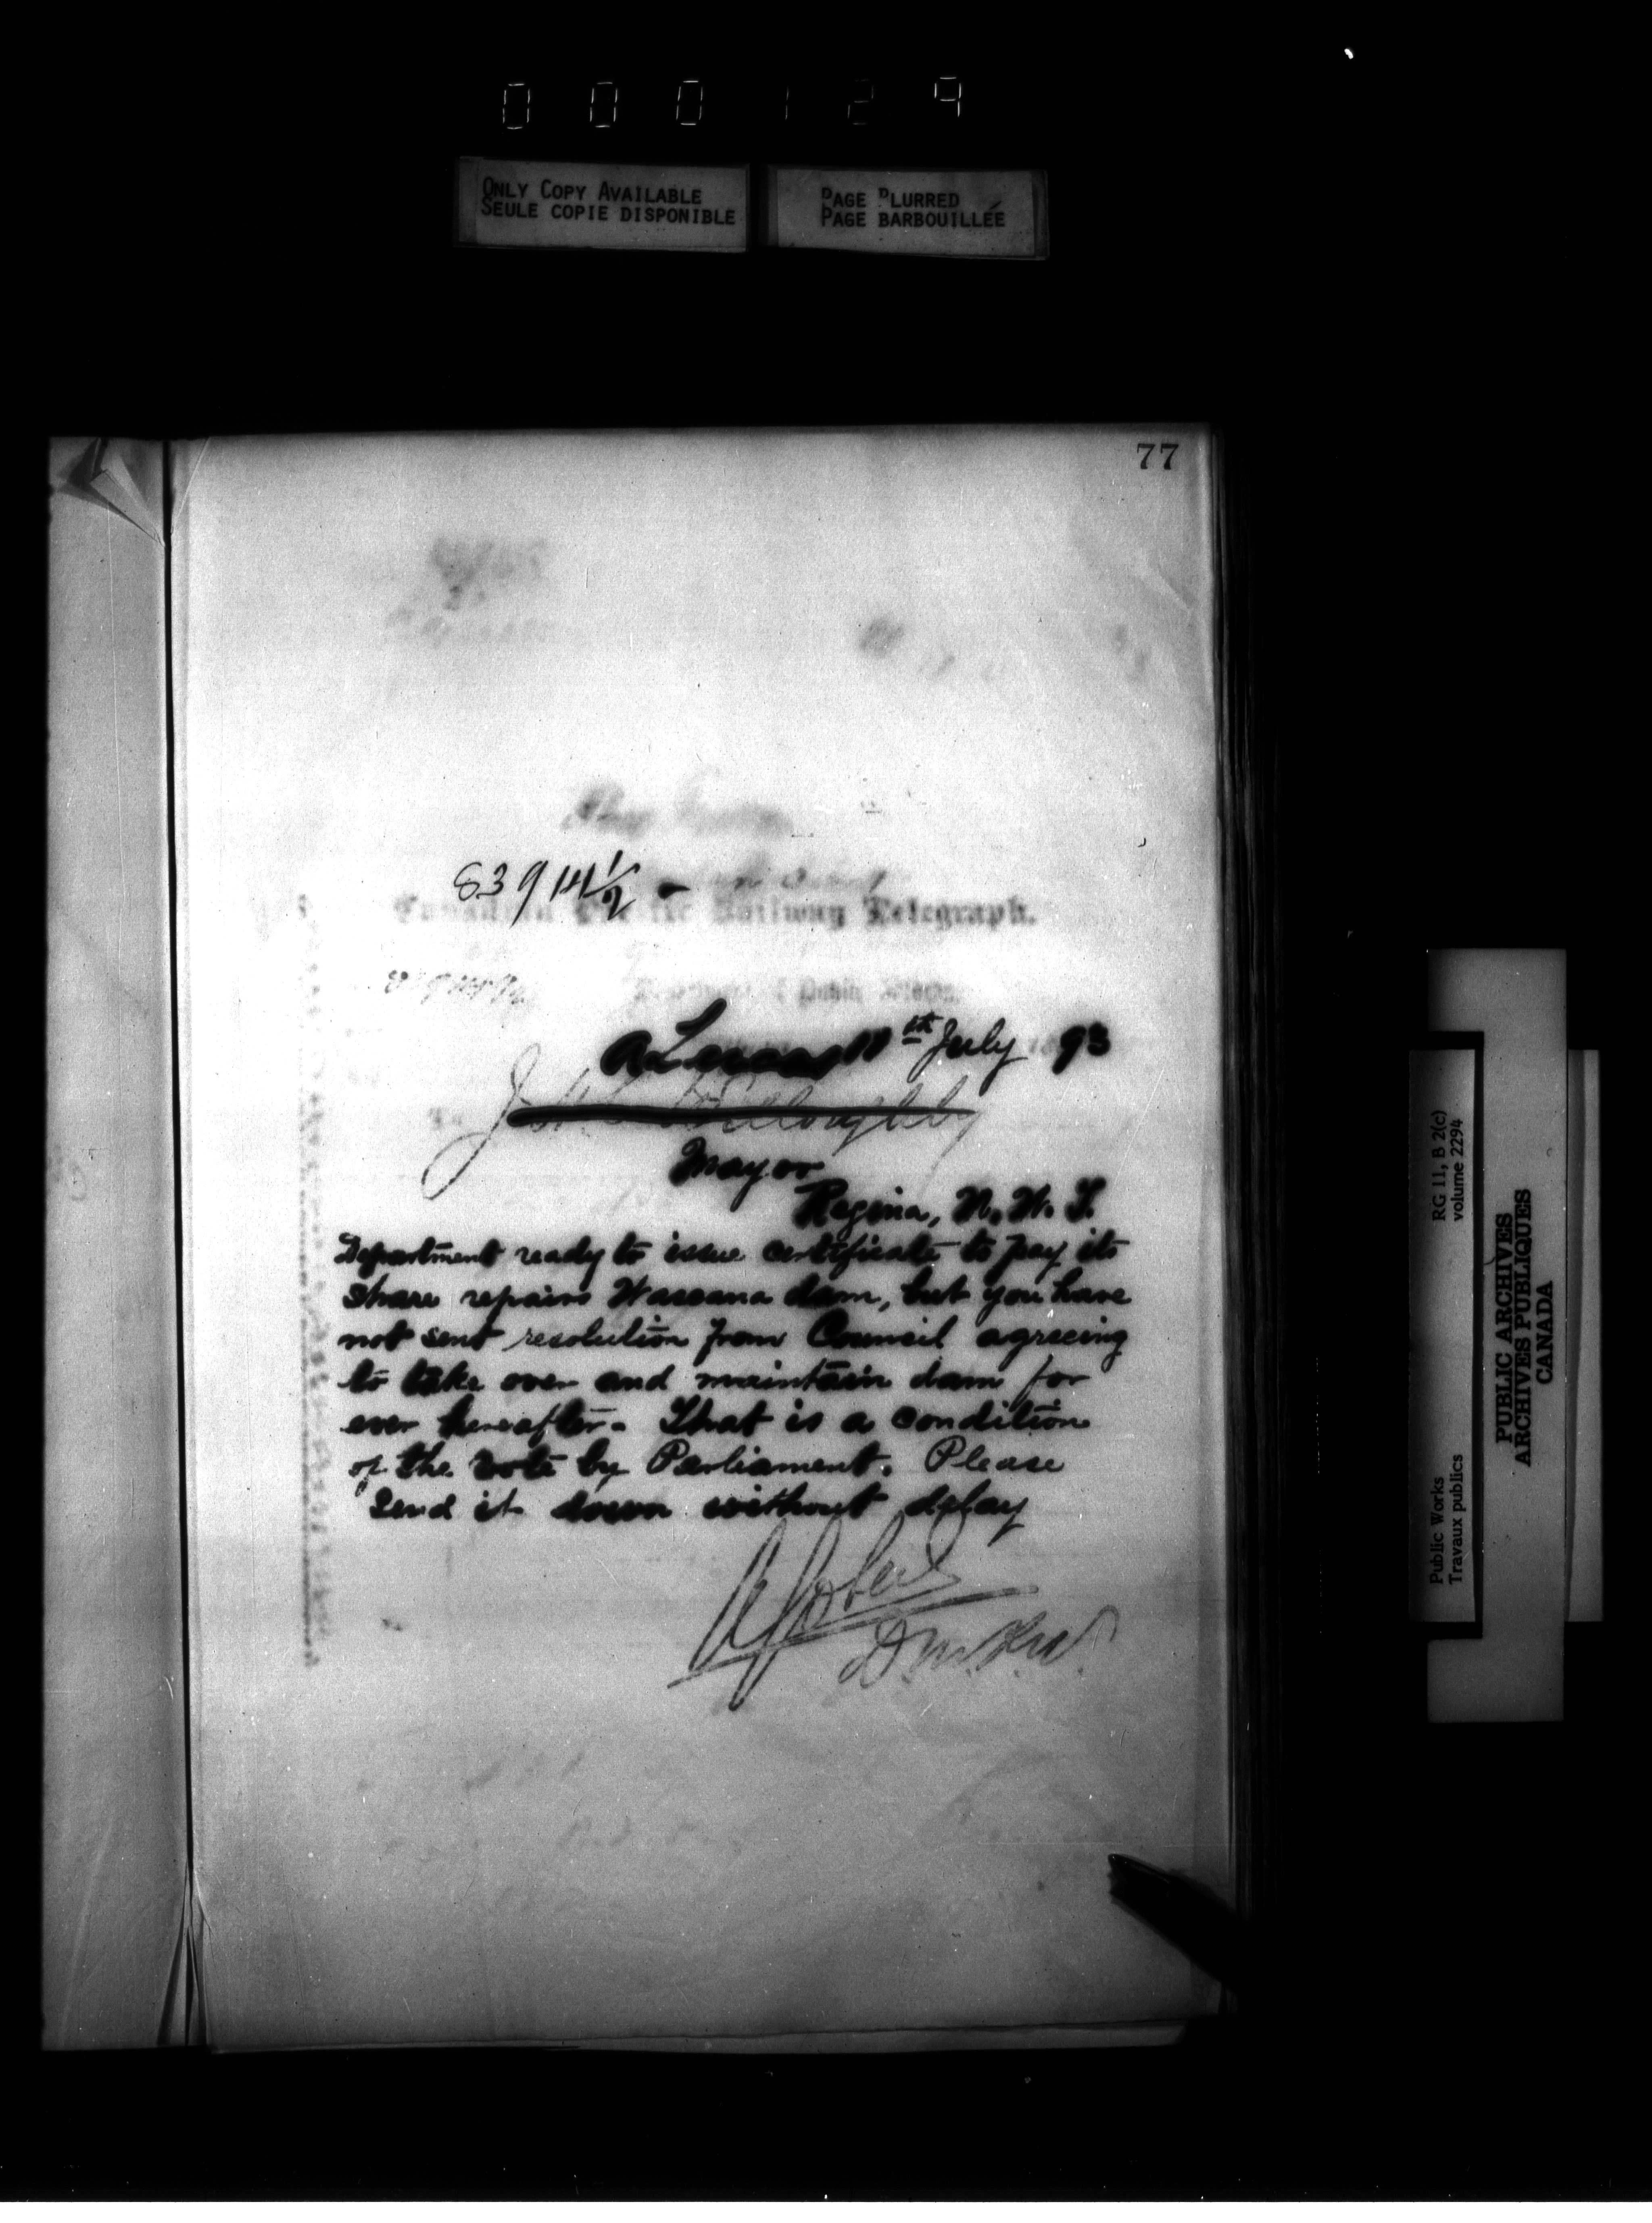 000129
ONLY COPY AVAILABLE
SEULE COPIE DISPONIBLE
PAGE BLURRED
PAGE BARBOUILLÉE
77
83914½ -
Canadian Pacific Railway Telegraph.
Department of Public Works
11th July 1893
Willoughby
Mayor
Regina, N. W. T.
Department ready to issue certificate to pay its
share repairs Wascana dam, but you have
not sent resolution from Council agreeing
to take over and maintain dam for
ever hereafter. That is a condition
of the vote by Parliament. Please
send it down without delay
A Gobeil
D.M.P.W.
Public Works
Travaux publics
RG 11, B 2(c)
volume 2294
PUBLIC ARCHIVES
ARCHIVES PUBLIQUES
CANADA